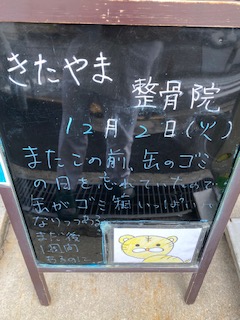 きたやま
整骨院
12月2日(火)
またこの前、缶のゴミ
の日を忘れていたので
缶がゴミ箱いっぱいに
なりつつある
まだ後
1週間
あるのに